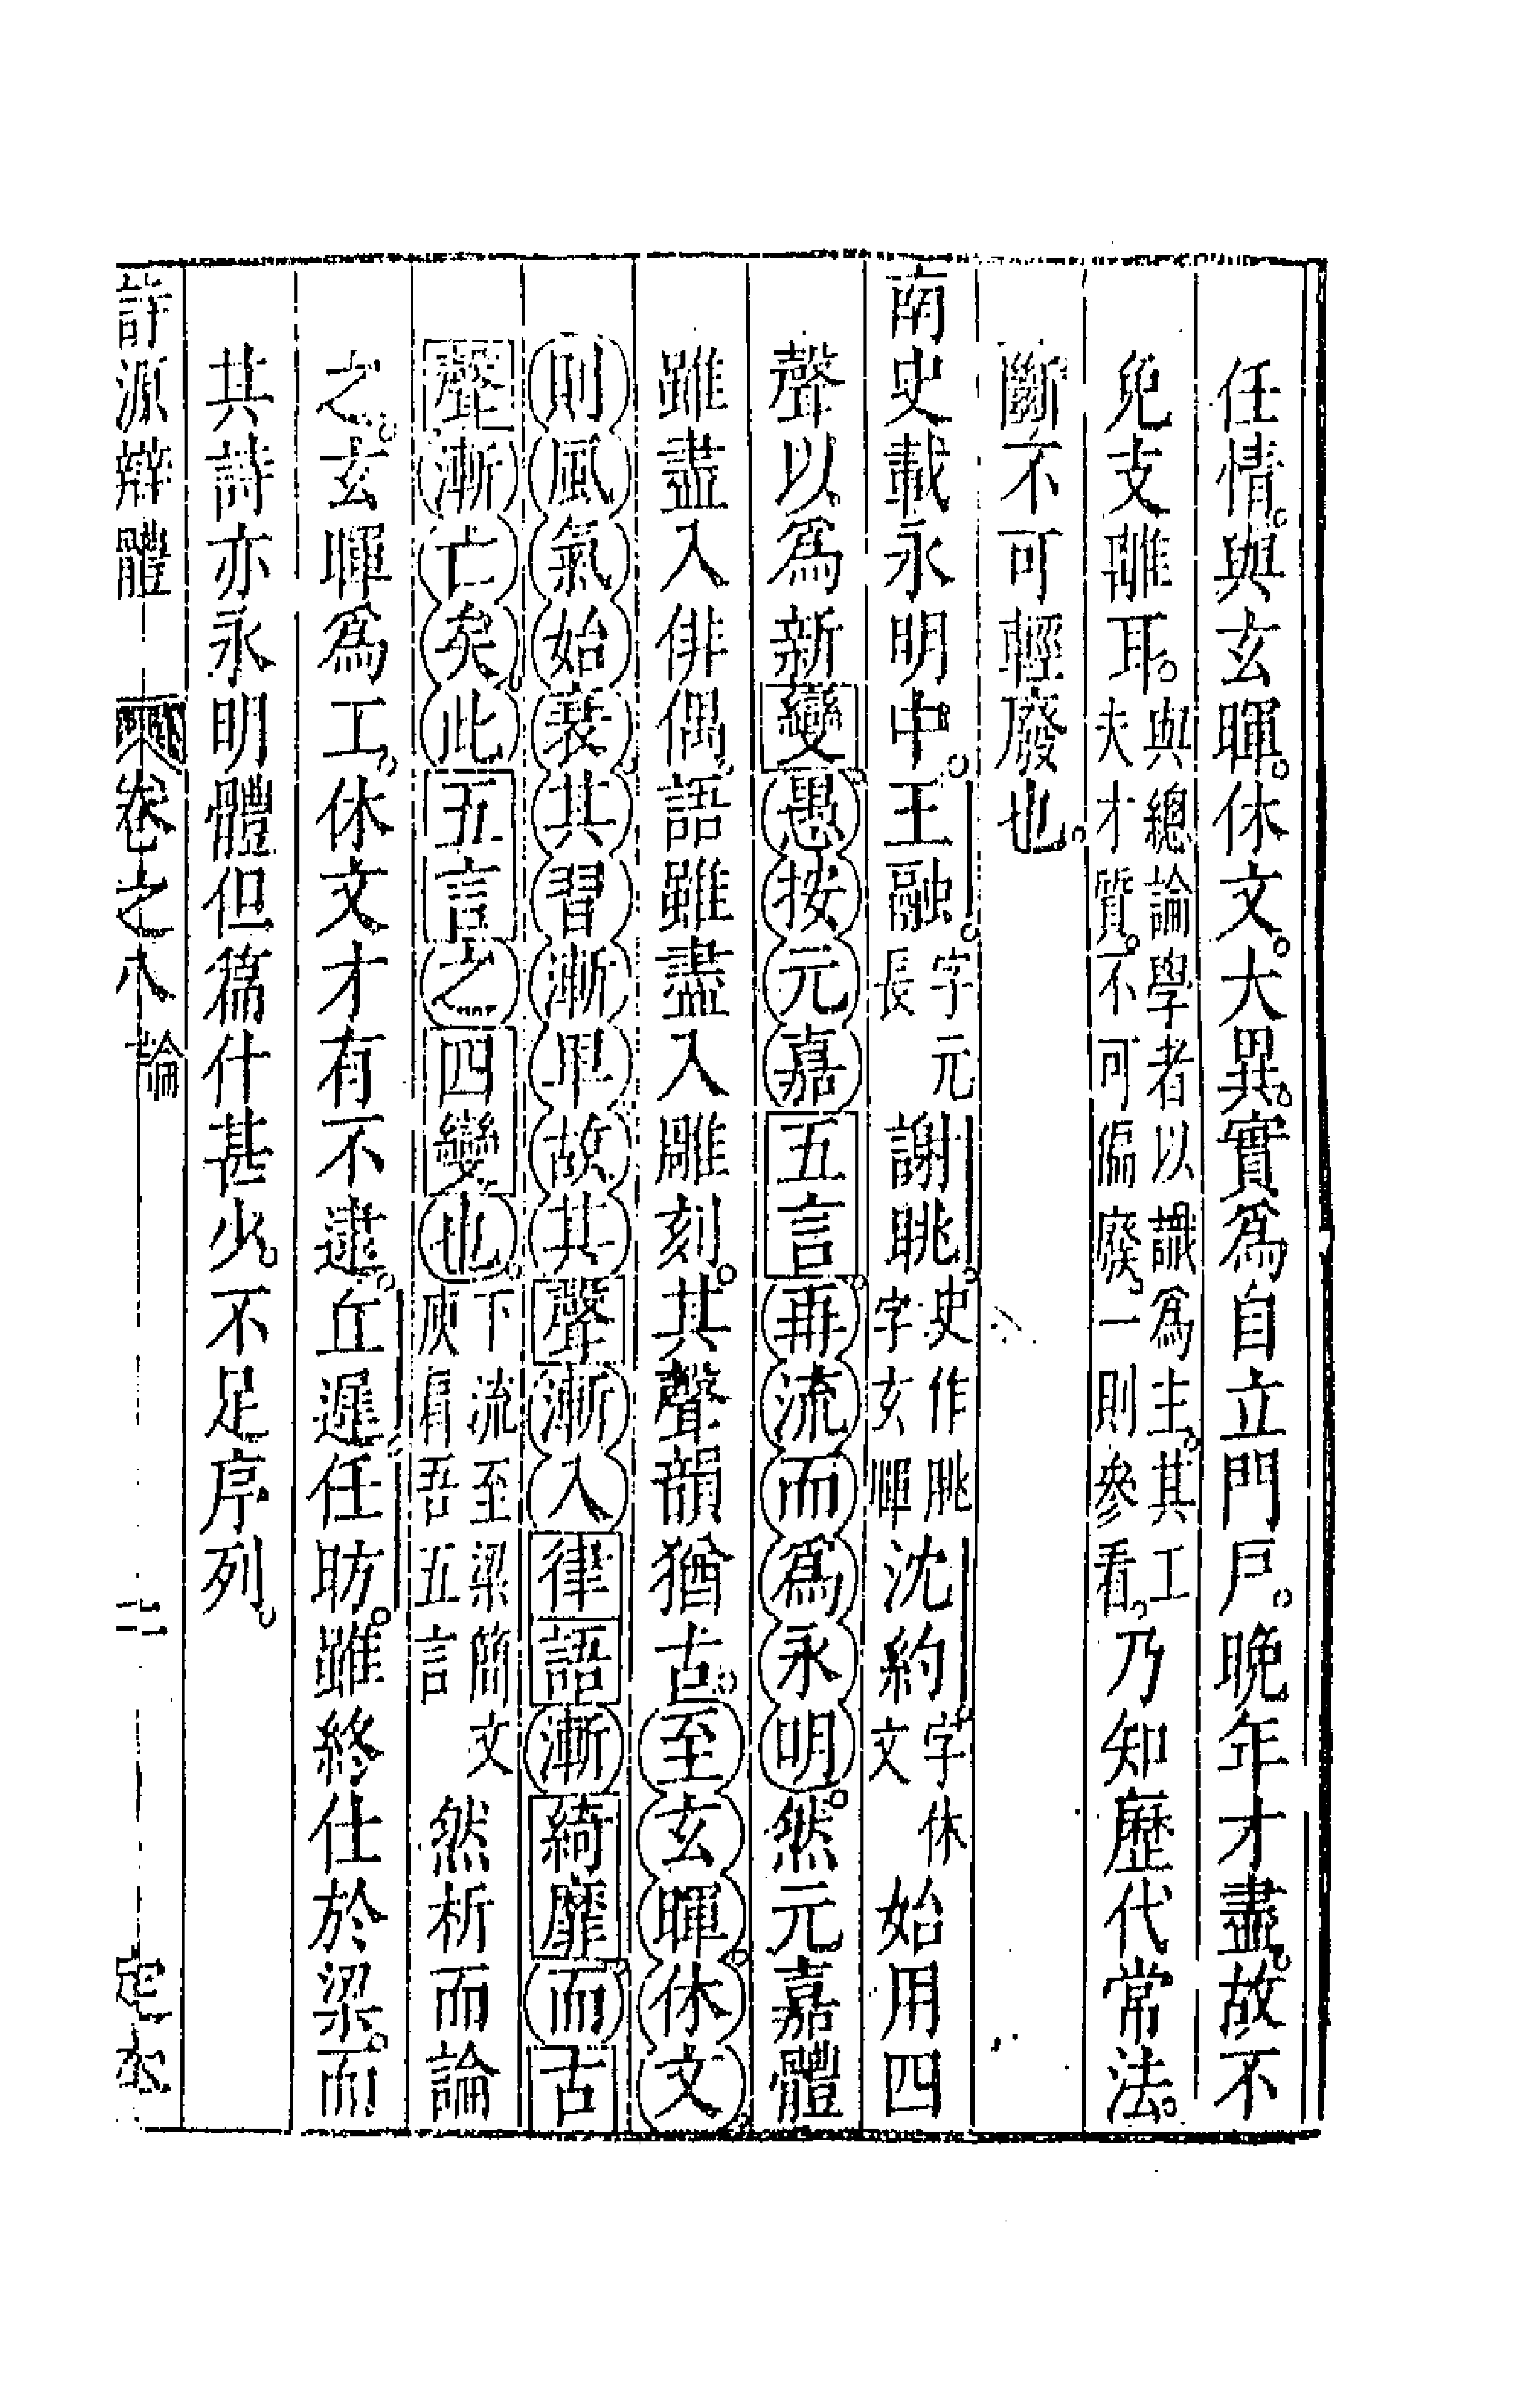 任情與玄暉休文大異實爲自立門戶晚年才盡故不
免支離耳與總論學者以識爲主其工夫才質不可偏廢一則參看乃知歷代常法
斷不可輕廢也
南史載永明中王融字元長謝朓史作脁字玄暉沈約字休文始用四
聲以爲新變愚按元嘉五言再流而爲永明然元嘉體
雖盡入俳偶語雖盡入雕刻其聲韻猶古至玄暉休文
則風氣始衰其習漸卑故其聲漸入律語漸綺靡而古
聲漸亡矣此五言之四變也下流至梁簡文庾肩吾五言然析而論
之玄暉爲工休文才有不逮丘遲任昉雖終仕於梁而
其詩亦永明體但篇什甚少不足序列
詩源辯體 卷之八 論